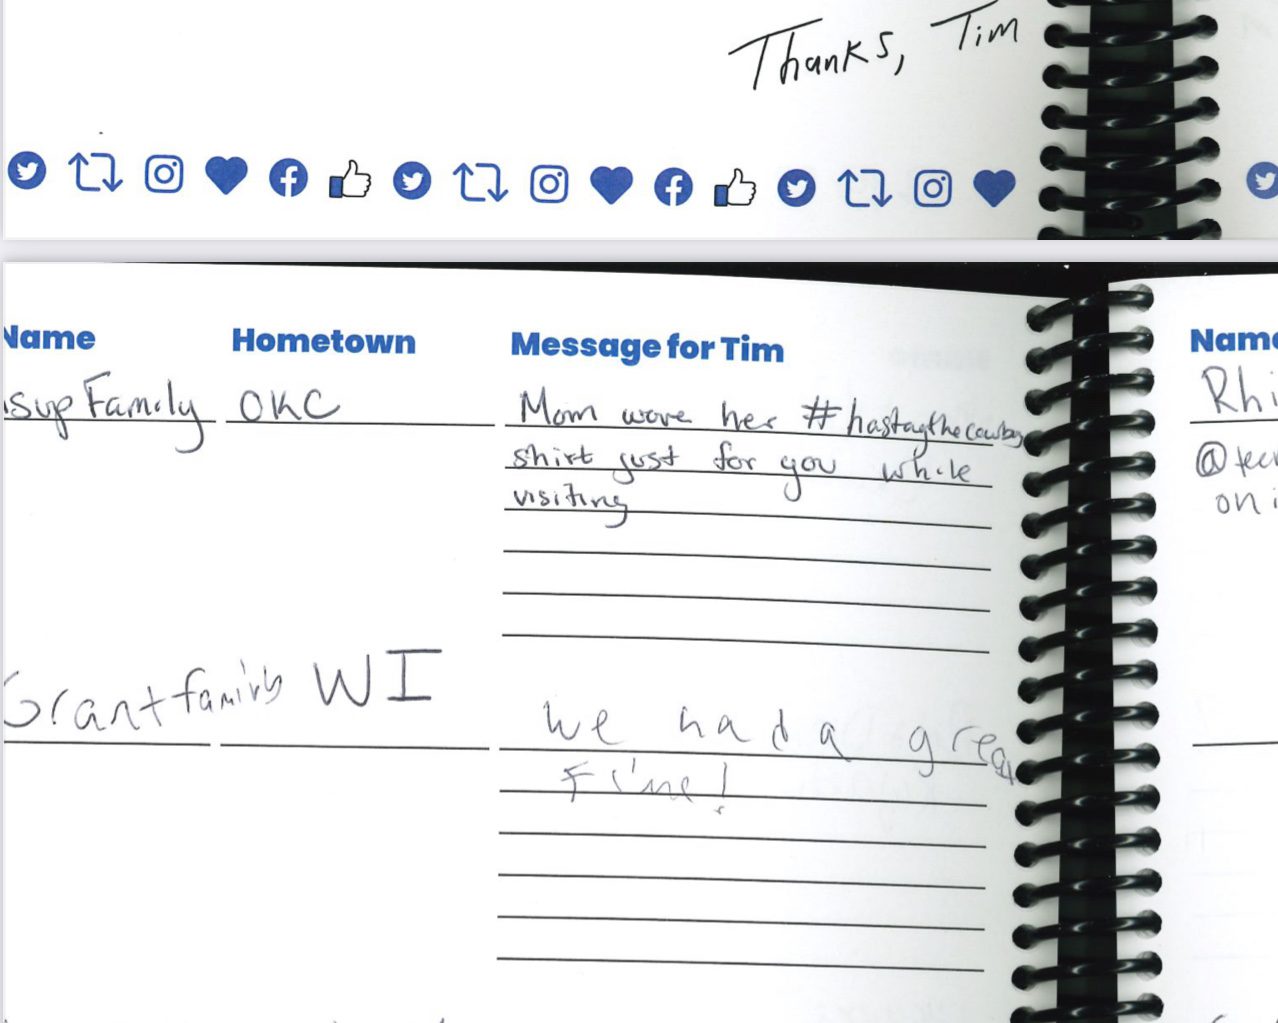 Thanks, Tim
Name Hometown Message for Tim
Family OKC Mom wore her #hastagthecowboy
shirt just for you while
visiting
Grant family WI We had a great
time!
Name
Rhi
@tee
on i